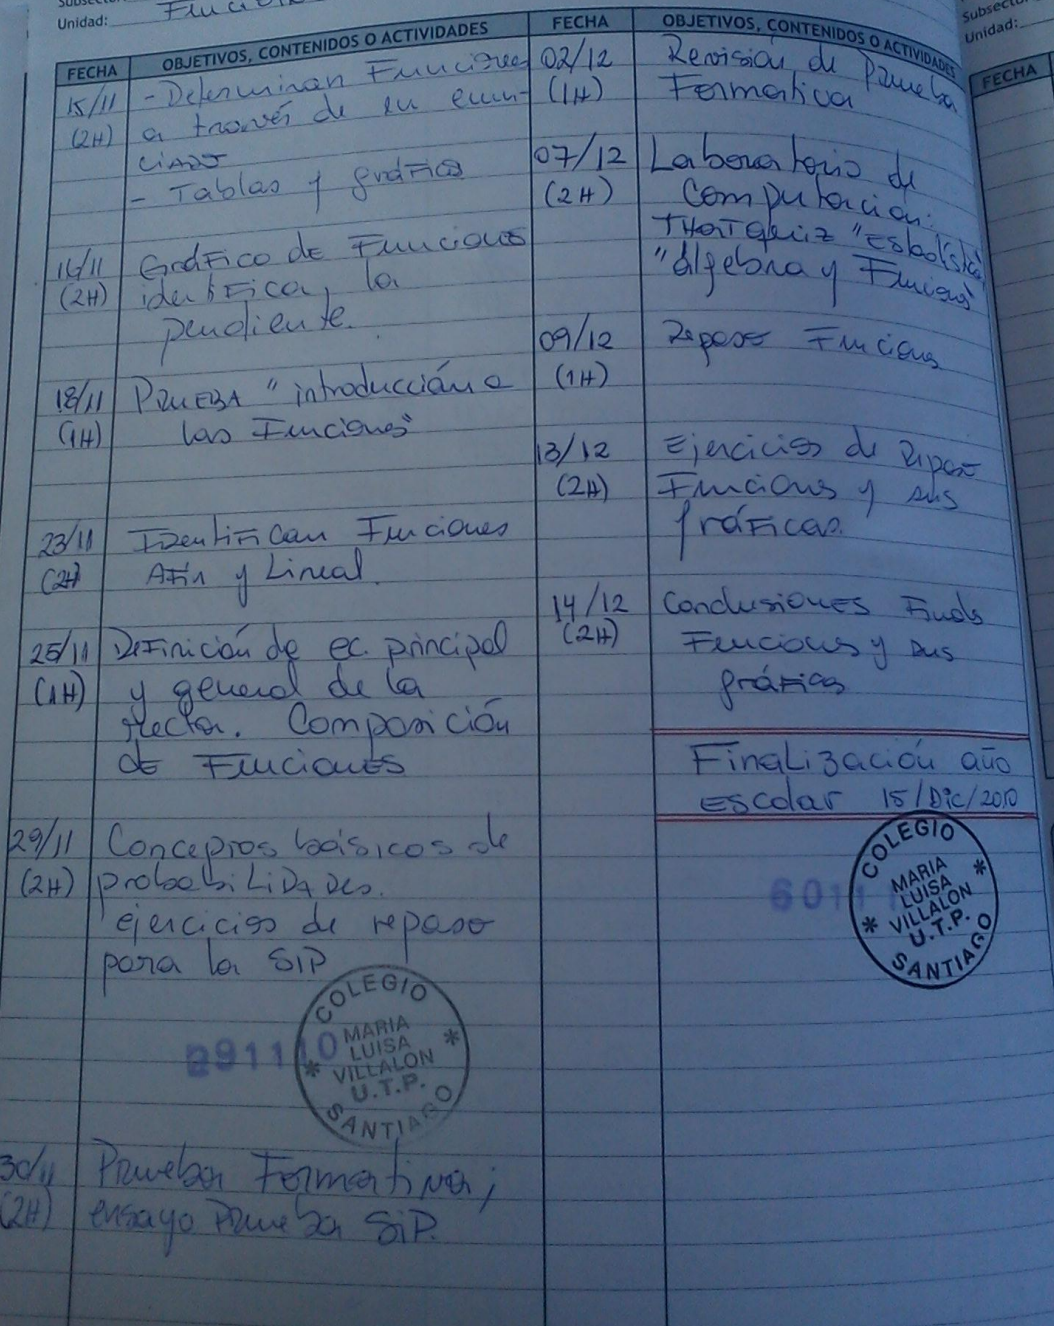 Unidad: Funcio
FECHA
OBJETIVOS, CONTENIDOS O ACTIVIDADES
15/11
(2H)
- Determinan Funciones
a través de su enun-
ciado
- Tablas y gráfica
16/11
(2H)
Gráfico de Funciones
identifica, la
pendiente.
18/11
(1H)
PRUEBA "introducción a
las Funciones"
23/11
(2H)
Identifican Funciones
Afín y Lineal.
25/11
(1H)
Definición de ec. principal
y general de la
recta. Composición
de Funciones
29/11
(2H)
Conceptos básicos de
probabiLiDADes.
ejercicios de repaso
para la SIP
291110
COLEGIO
MARIA
LUISA
VILLALON
U.T.P.
SANTIAGO
30/11
(2H)
Prueba Formativa;
ensayo Prueba SIP.
FECHA
OBJETIVOS, CONTENIDOS O ACTIVIDADES
02/12
(1H)
Revisión de Prueba
Formativa
07/12
(2H)
Laboratorio de
Computación:
THATQuiz "Estadística"
"Algebra y Funciones"
09/12
(1H)
Repaso Funciones
13/12
(2H)
Ejercicios de Repaso
Funciones y sus
gráficas.
14/12
(2H)
Conclusiones Finales
Funciones y sus
gráficas
Finalización año
Escolar 15/Dic/2010
6011
COLEGIO
MARIA
LUISA
VILLALON
U.T.P.
SANTIAGO
Unidad:
FECHA